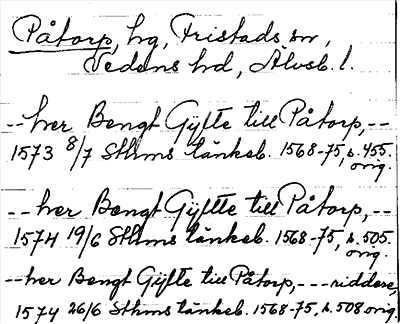 Påtorp, hg, Fristads sn,
Vedens hd, Älvsb. l.
-- her Bengt Gyfte till Påtorp, --
1573 8/7 Sthms tänkeb. 1568-75, s. 455.
orig.
-- her Bengt Gyfte till Påtorp, --
1574 19/6 Sthms tänkeb. 1568-75, s. 505.
orig.
-- her Bengt Gyfte till Påtorp, --- riddere,
1574 26/6 Sthms tänkeb. 1568-75, s. 508 orig.